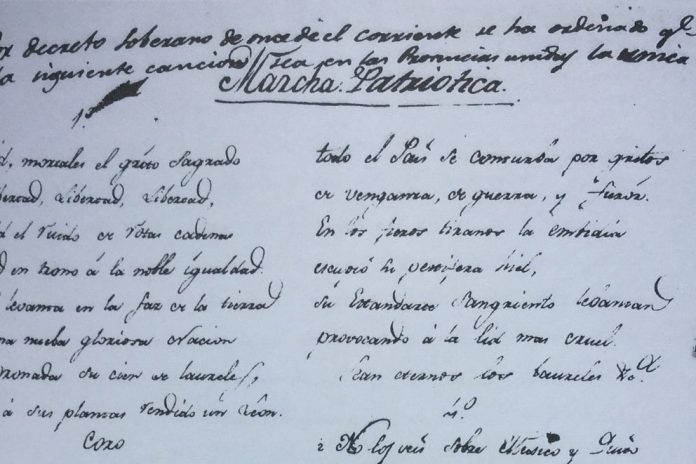 or decreto soberano de once del corriente se ha ordenado qe
a siguiente cancion sea en las Provincias unidas la unica
Marcha Patriotica.
1.º
d, mortales el grito sagrado
bertad, Libertad, Libertad,
d el ruido de rotas cadenas
d en trono á la noble igualdad.
levanta en la faz de la tierra
na nueba gloriosa Nacion
oronada su cien de laureles,
á sus plantas rendido un Leon.
Coro
todo el País se conturba por gritos
de venganza, de guerra, y furor.
En los fieros tiranos la embidia
escupió su pestifera hiel,
su Estandarte sangriento levantan
provocando á la lid mas cruel.
Sean eternos los Laureles &.a
4.º
¿No los veis sobre Mexico y Quito